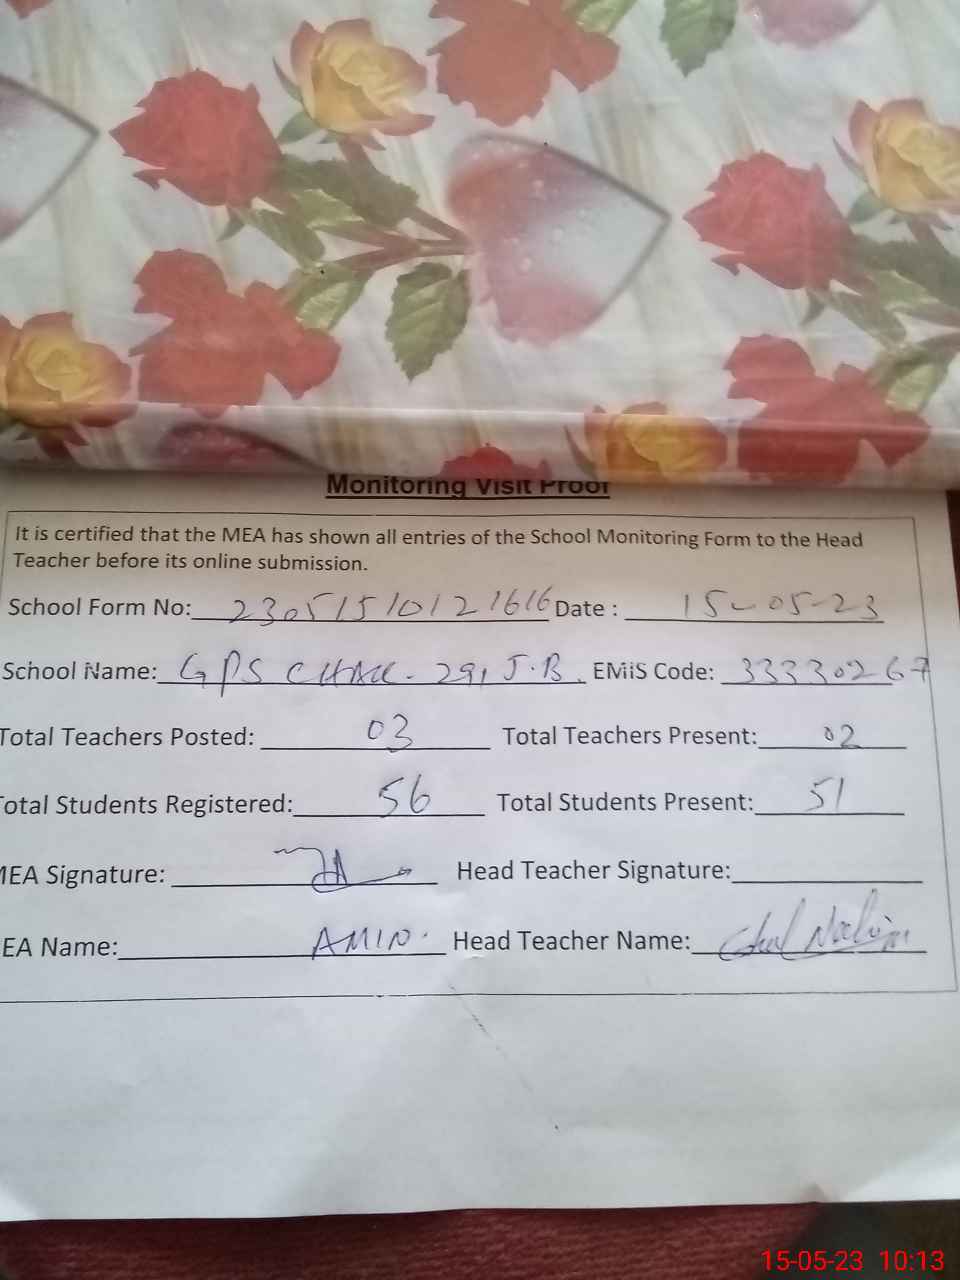 Monitoring Visit Proof
It is certified that the MEA has shown all entries of the School Monitoring Form to the Head
Teacher before its online submission.
School Form No: 23051510121616 Date : 15-05-23
School Name: GPS CHAK. 291 J.B. EMiS Code: 33330267
Total Teachers Posted: 03 Total Teachers Present: 02
Total Students Registered: 56 Total Students Present: 51
MEA Signature: Head Teacher Signature:
EA Name: AMIN. Head Teacher Name:
15-05-23 10:13